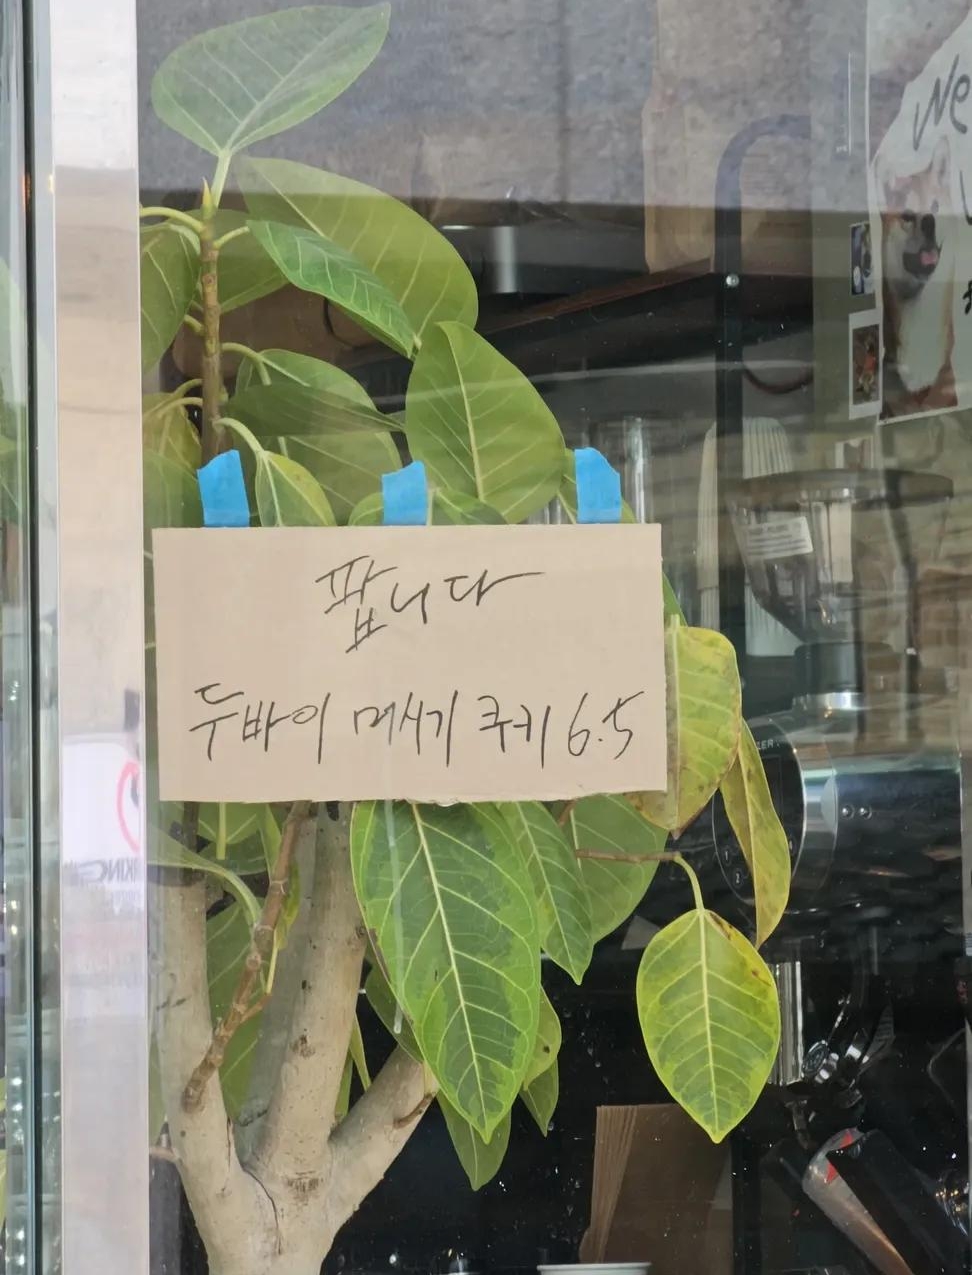 팝니다
두바이 머시기 쿠키 6.5
Ne